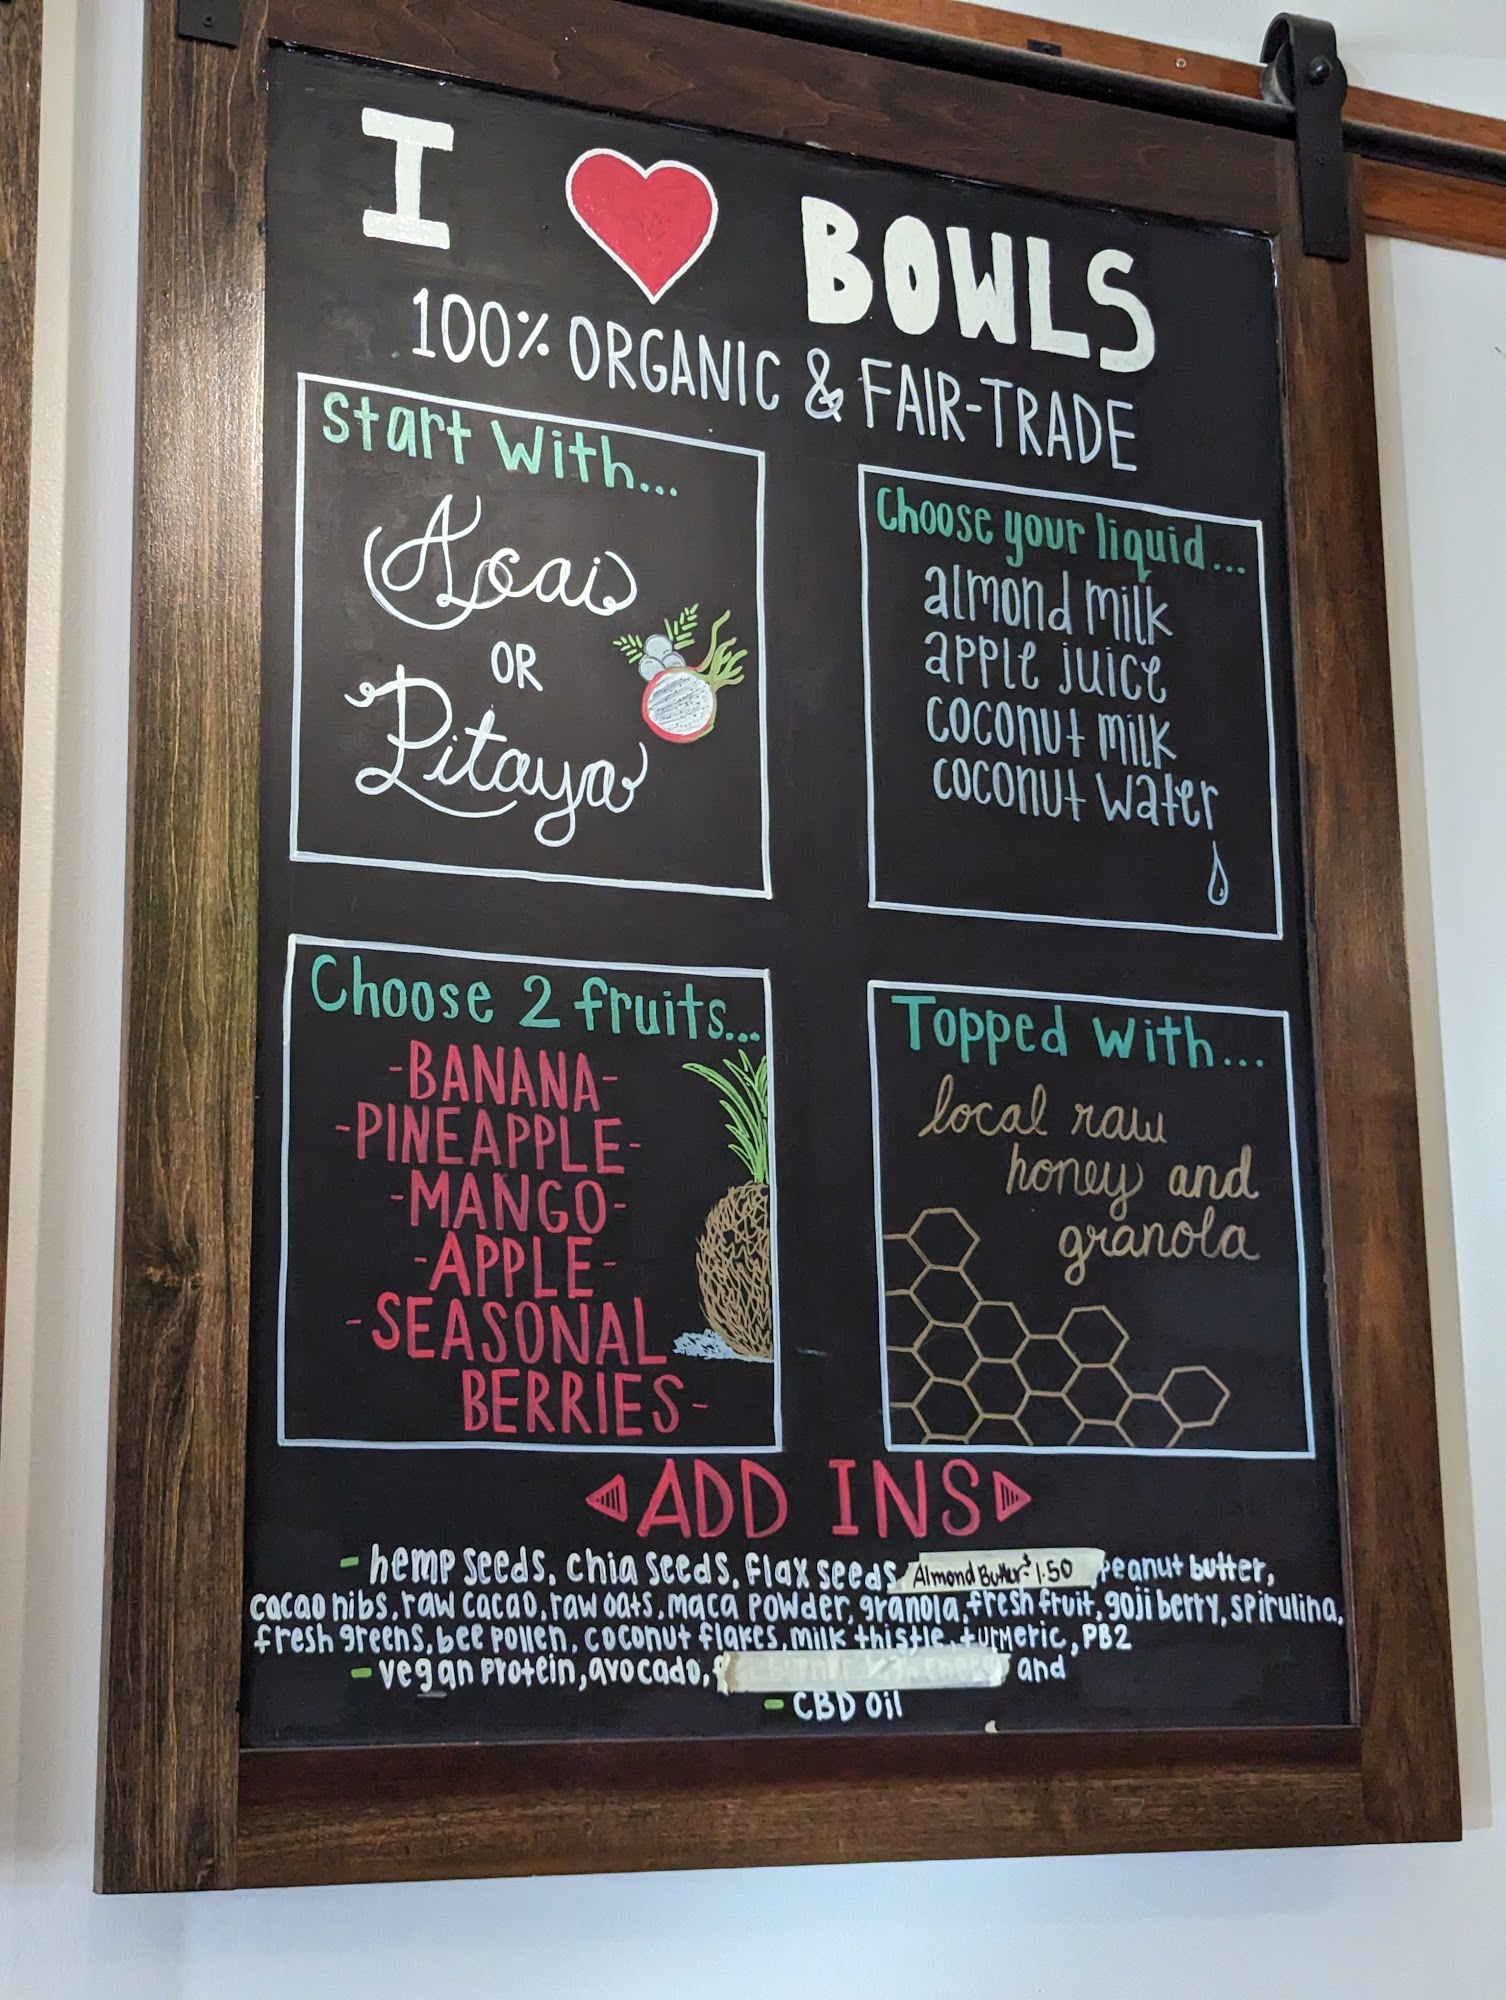 I ❤ BOWLS
100% ORGANIC & FAIR-TRADE
Start With...
Acai
OR
Pitaya
Choose your liquid...
almond milk
apple juice
coconut milk
coconut water
Choose 2 fruits...
-BANANA-
-PINEAPPLE-
-MANGO-
-APPLE-
-SEASONAL
BERRIES-
Topped With...
local raw
honey and
granola
ADD INS
- hemp seeds, chia seeds, flax seeds Almond Butter $1.50 Peanut butter,
cacao nibs, raw cacao, raw oats, maca powder, granola, fresh fruit, goji berry, spirulina,
fresh greens, bee pollen, coconut flakes, milk thistle, turmeric, PB2
- vegan protein, avocado, and
- CBD oil